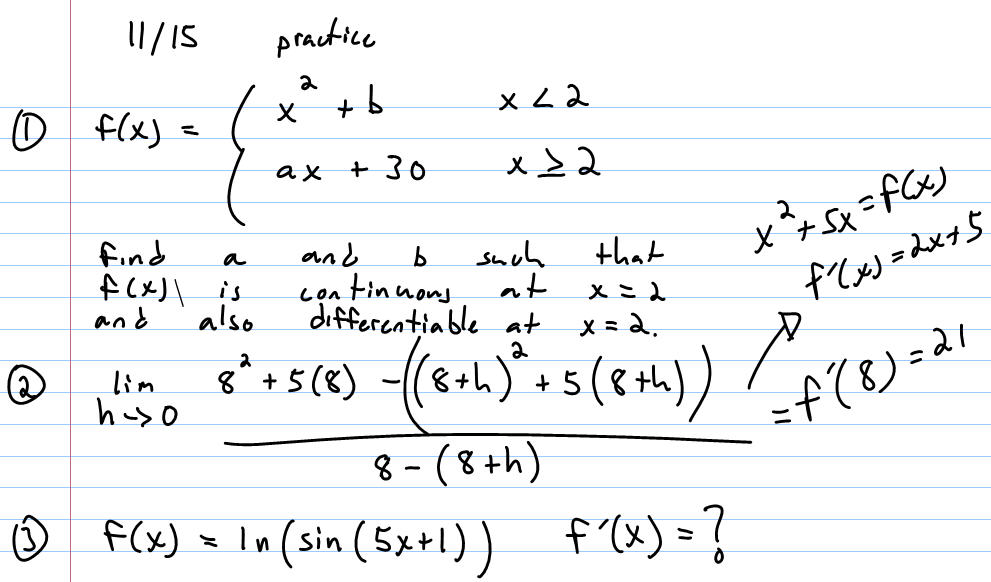 11/15 practice
① f(x) = { x² + b x < 2
ax + 30 x ≥ 2
find a and b such that
f(x) is continuous at x = 2
and also differentiable at x = 2.
x² + 5x = f(x)
f'(x) = 2x+5
② lim h→0 8² + 5(8) - ((8+h)² + 5(8+h))
8 - (8+h)
= f'(8) = 21
③ f(x) = ln(sin(5x+1)) f'(x) = ?